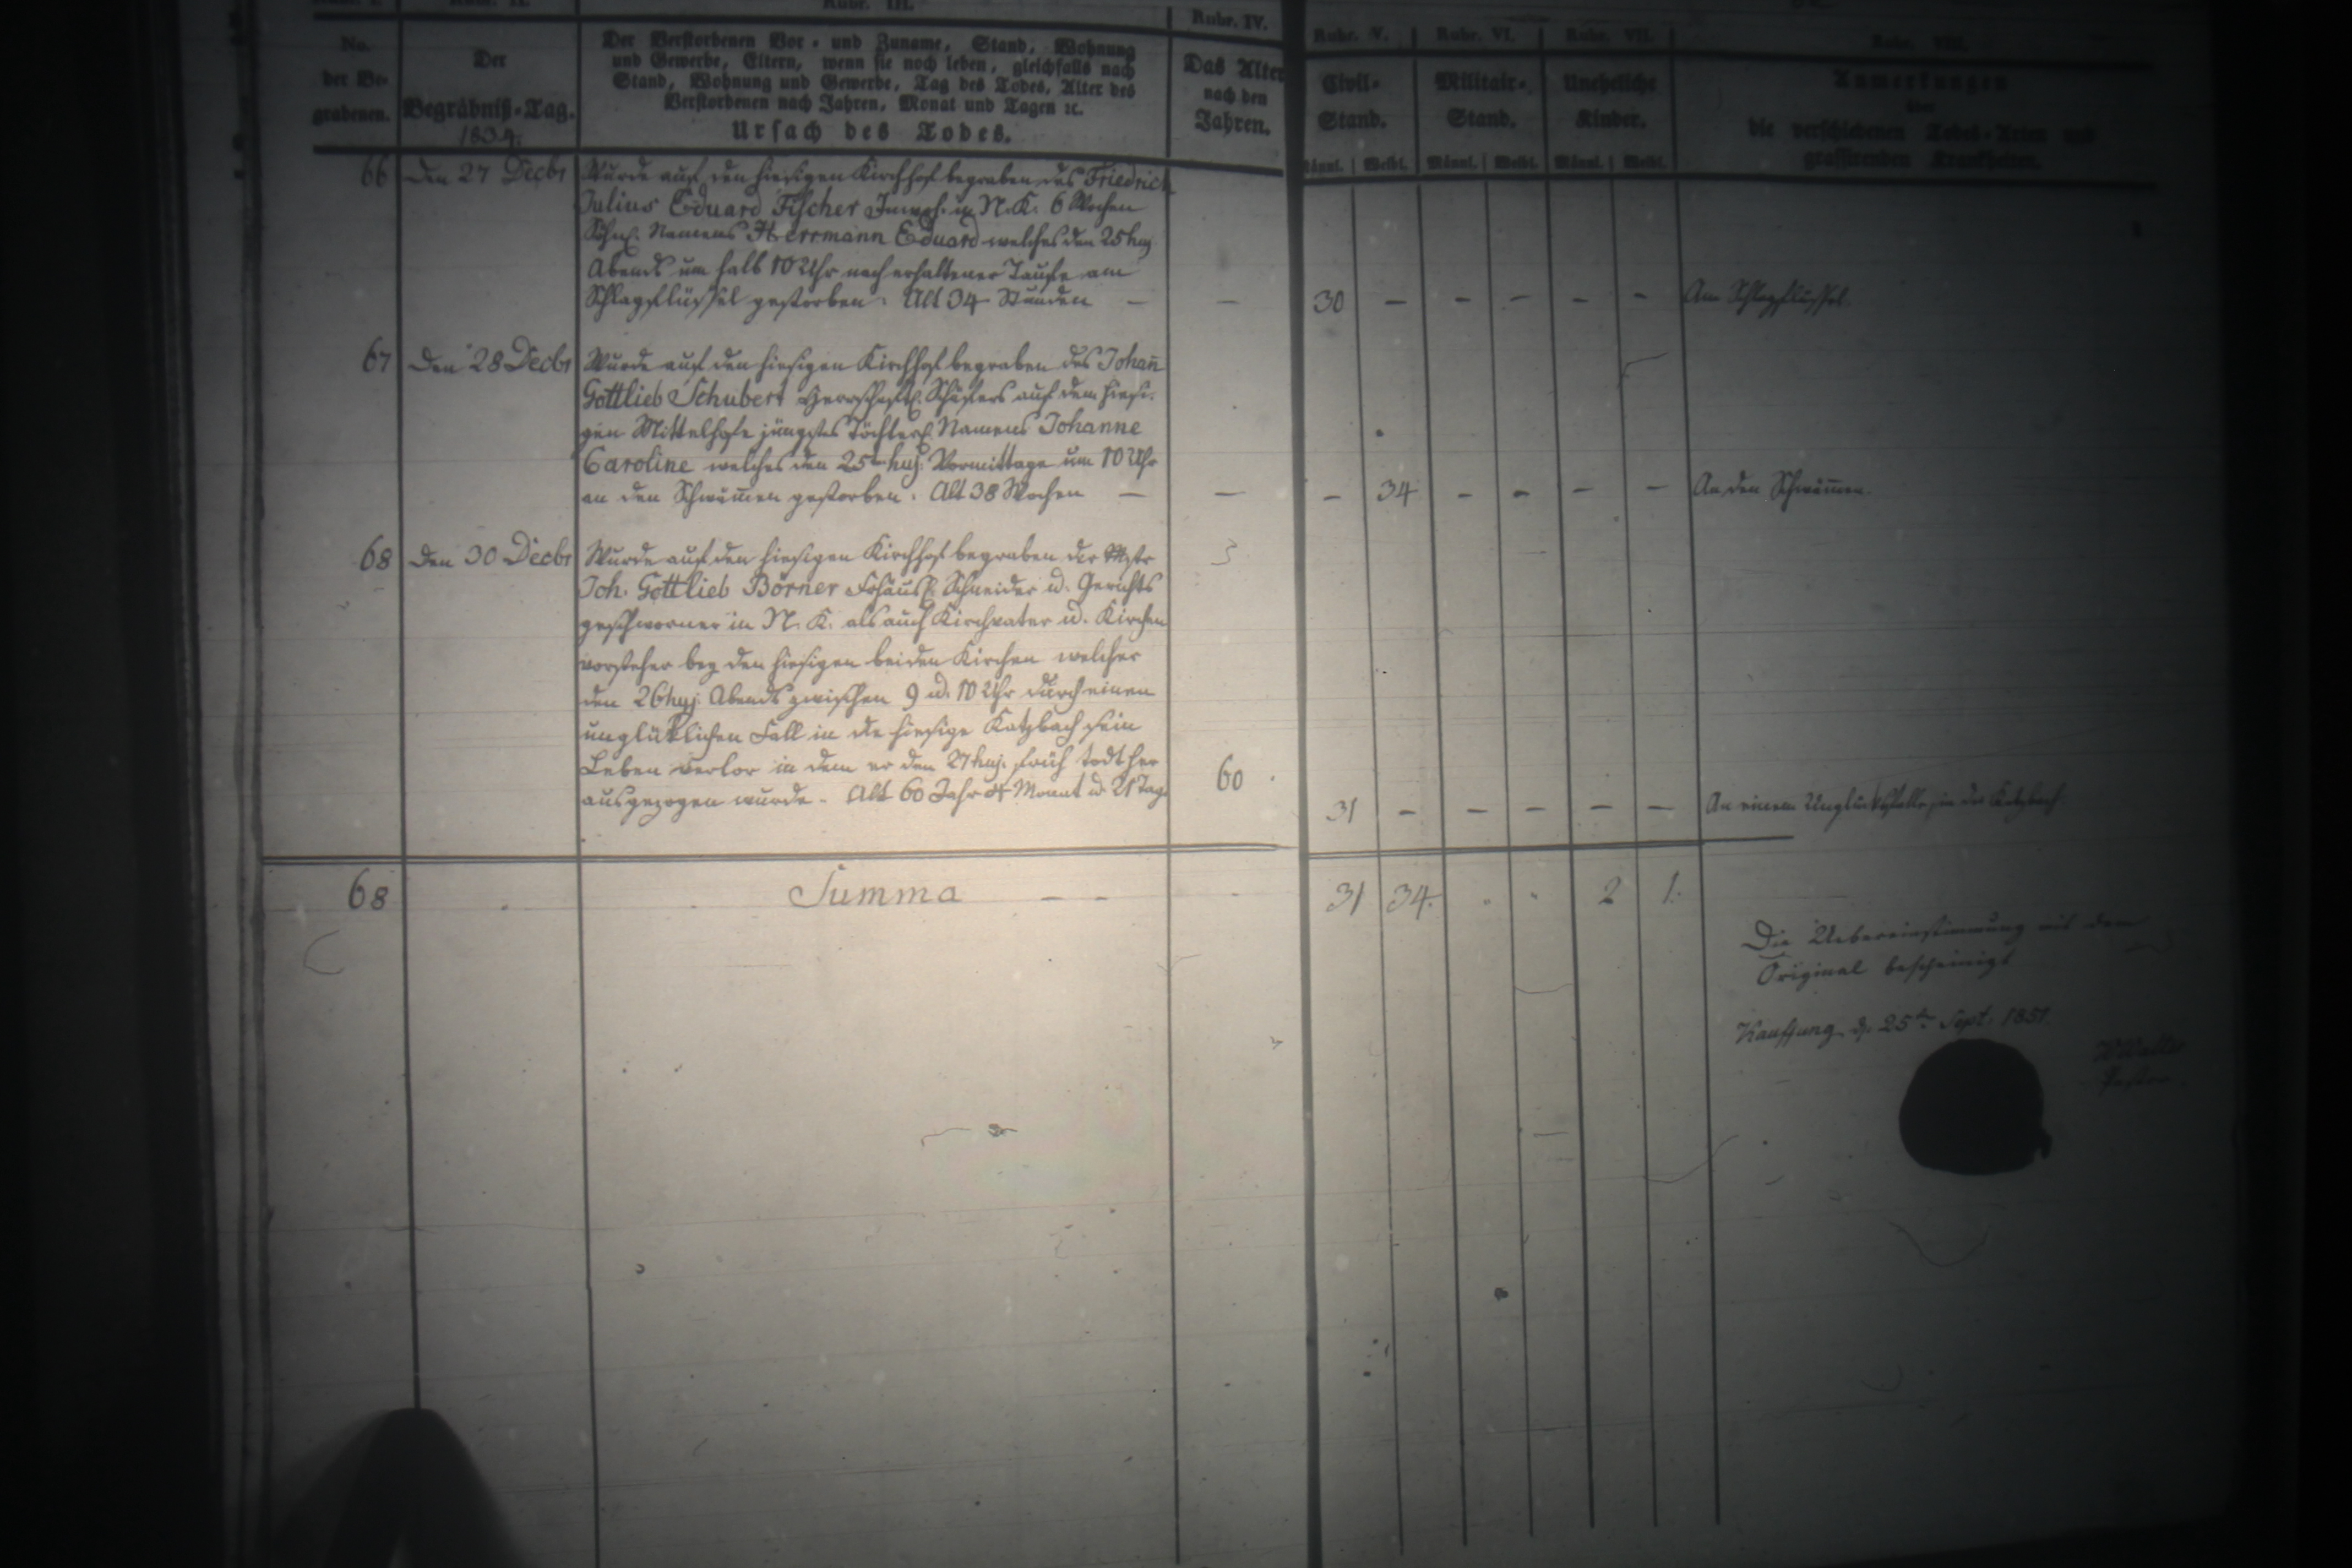 Rubr. III.
Rubr. IV.
Rubr. V.
Rubr. VI.
Rubr. VII.
Rubr. VIII.
No.
der Be-
grabenen.
Der
Begräbniß-Tag.
1834.
Der Verstorbenen Vor- und Zuname, Stand, Wohnung
und Gewerbe, Eltern, wenn sie noch leben, gleichfalls nach
Stand, Wohnung und Gewerbe, Tag des Todes, Alter des
Verstorbenen nach Jahren, Monat und Tagen ꝛc.
Ursach des Todes.
Das Alter
nach den
Jahren.
Civil-
Stand.
Männl. Weibl.
Militair-
Stand.
Männl. Weibl.
Uneheliche
Kinder.
Männl. Weibl.
Anmerkungen
über
die verschiedenen Todes-Arten und
grassirenden Krankheiten.
66 Den 27 Decbr
Wurde auf den hiesigen Kirchhof begraben des Friedrich
Julius Eduard Fischer Inwoh. in N. K. 6 Wochen
Söhnl. Namens Herrmann Eduard welches den 25 huj.
Abends um halb 10 Uhr nach erhaltener Taufe am
Schlagflüssel gestorben. Alt 34 Stunden —
— 30 — — — — — Am Schlagflüssel.
67 Den 28 Decbr
Wurde auf den hiesigen Kirchhof begraben des Johan̄
Gottlieb Schubert Herrschaftl. Schäfers auf dem hiesi-
gen Mittelhofe jüngstes Töchterl. Namens Johanne
Caroline welches den 25t huj. Vormittage um 10 Uhr
an den Schwäm̄en gestorben. Alt 38 Wochen —
— — 34 — — — — An den Schwäm̄en.
68 Den 30 Decbr
Wurde auf den hiesigen Kirchhof begraben der Mstr
Joh. Gottlieb Börner Schneider u. Gerichts
geschworner in N. K. als auch Kirchvater u. Kirchen
vorsteher bey den hiesigen beiden Kirchen welcher
den 26 huj. Abends zwischen 9 u. 10 Uhr durch einen
unglüklichen Fall in die hiesige Katzbach sein
Leben verlor in dem er den 27 huj. früh todt her
ausgezogen wurde. Alt 60 Jahr Monat u. 21 Tag
60 31 — — — — — An einem Unglücksfalle, in der Katzbach.
68 Summa — — 31 34. 2 1.
Die Uebereinstimmung mit dem
Original bescheinigt
Kauffung d. 25ten Sept. 1851
Pastor.